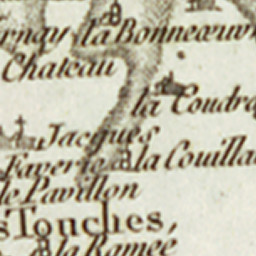 rnay la Bonneœuvr
Chateau
la Coudra
Jacques
Faverie la Couilla
le Pavillon
sTouches,
la Ramée